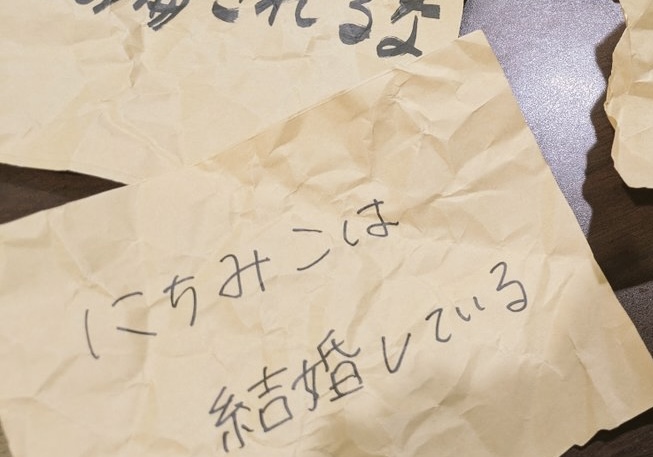 されるな
にちみこは
結婚している